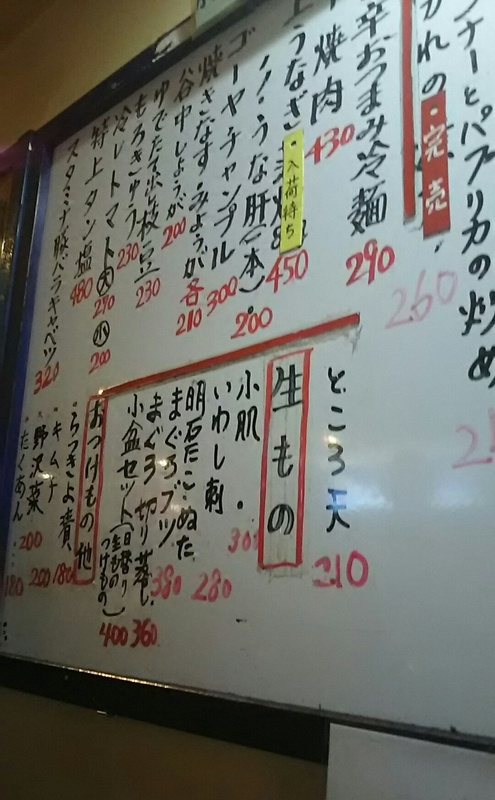 ンナーとパプリカの炒め
2
・完売
260
辛おつまみ冷麺 290
焼肉 430
うなぎ
・入荷待ち
450
うな肝(一本) 200
ゴーヤチャンプル 300
焼きなす・みょうが 各210
谷中しょうが 200
ゆでたて枝豆 230
もろきゅう 230
冷しトマト 大270 小200
特上タン塩 480
スタミナ豚バラキャベツ 320
ところ天 210
生もの
小肌 ・
いわし刺 300
明石だこぬた 280
まぐろブツ 380
まぐろ切り落し 360
小盆セット(日替り生もの つけもの) 400
おつけもの他
・らっきょ漬 180
・キムチ 200
・野沢菜 200
・たくあん 180